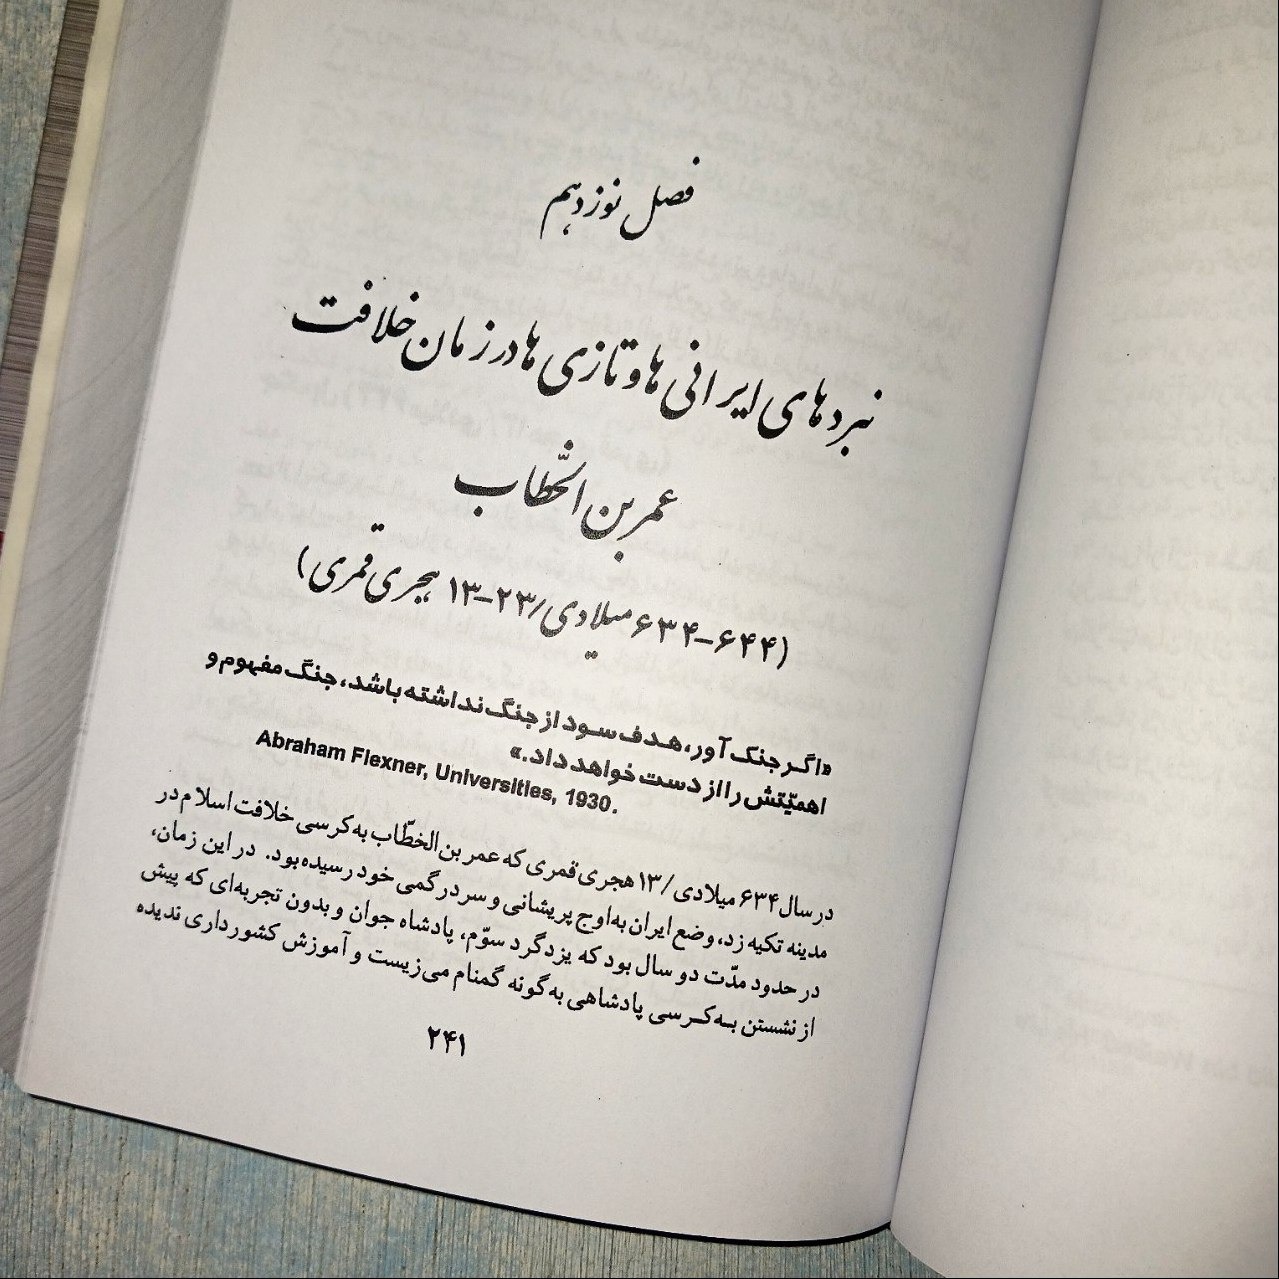 فصل نوزدهم
نبردهای ایرانی ها و تازی ها در زمان خلافت
عمر بن الخطّاب
(۶۴۴-۶۳۴ میلادی/۲۳-۱۳ هجری قمری)
«اگر جنگ آور، هدف سود از جنگ نداشته باشد، جنگ مفهوم و
اهمیّتش را از دست خواهد داد.»
Abraham Flexner, Universities, 1930.
در سال ۶۳۴ میلادی/۱۳ هجری قمری که عمر بن الخطّاب به کرسی خلافت اسلام در
مدینه تکیه زد، وضع ایران به‌اوج پریشانی و سردرگمی خود رسیده بود. در این زمان،
در حدود مدّت دو سال بود که یزدگرد سوّم، پادشاه جوان و بدون تجربه‌ای که پیش
از نشستن به‌کرسی پادشاهی به‌گونه گمنام می‌زیست و آموزش کشورداری ندیده
۲۴۱